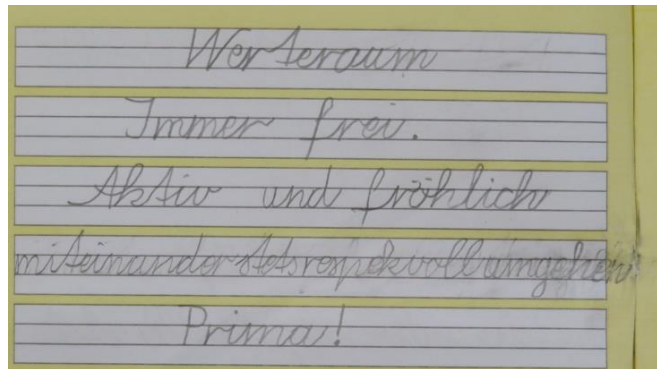 Werteraum
Immer frei.
Aktiv und fröhlich
miteinander stets respekvoll umgehen
Prima!